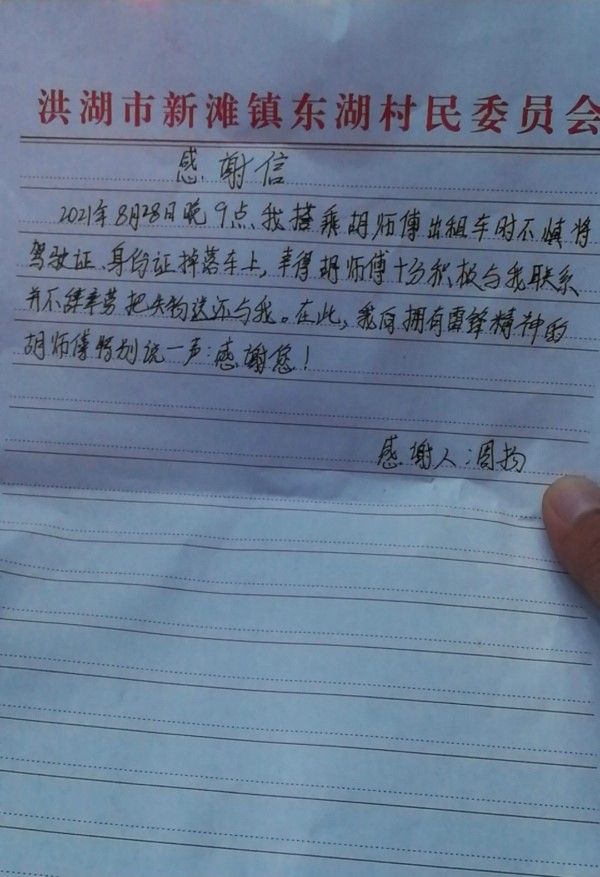 洪湖市新滩镇东湖村民委员会
感谢信
2021年8月28日晚9点,我搭乘胡师傅出租车时不慎将
驾驶证、身份证掉落车上,幸得胡师傅十分积极与我联系
并不辞辛劳把失物送还与我。在此,我向拥有雷锋精神的
胡师傅特别说一声:感谢您!
感谢人:周扬